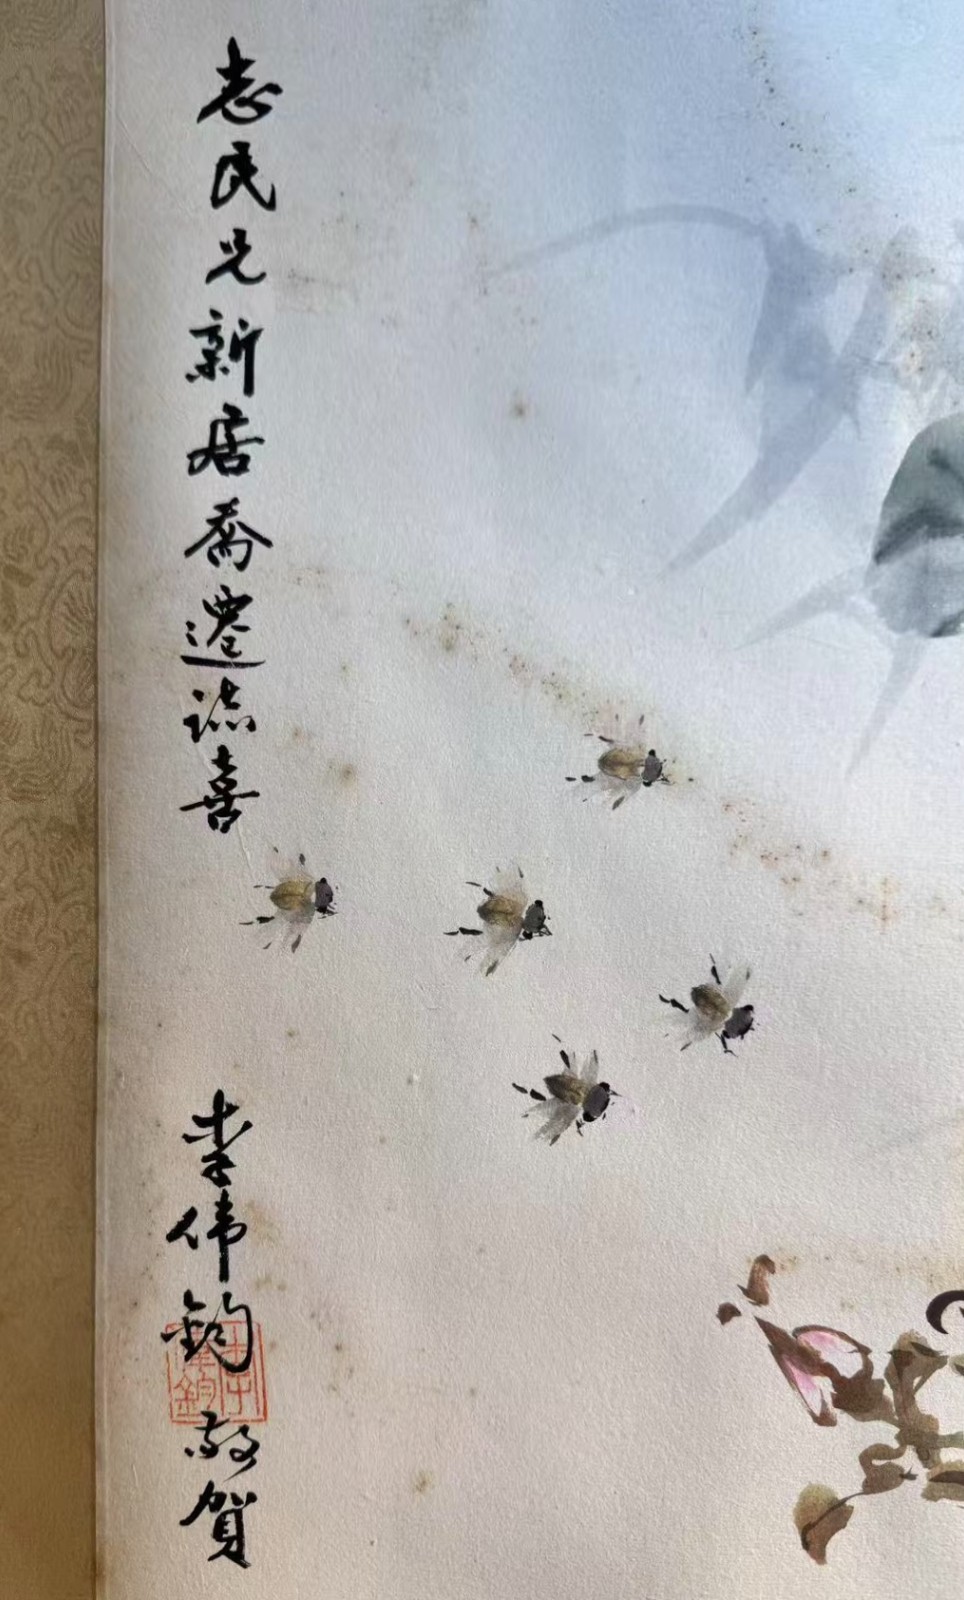 志民兄新居喬遷誌喜
李偉鈞敬賀
李偉鈞